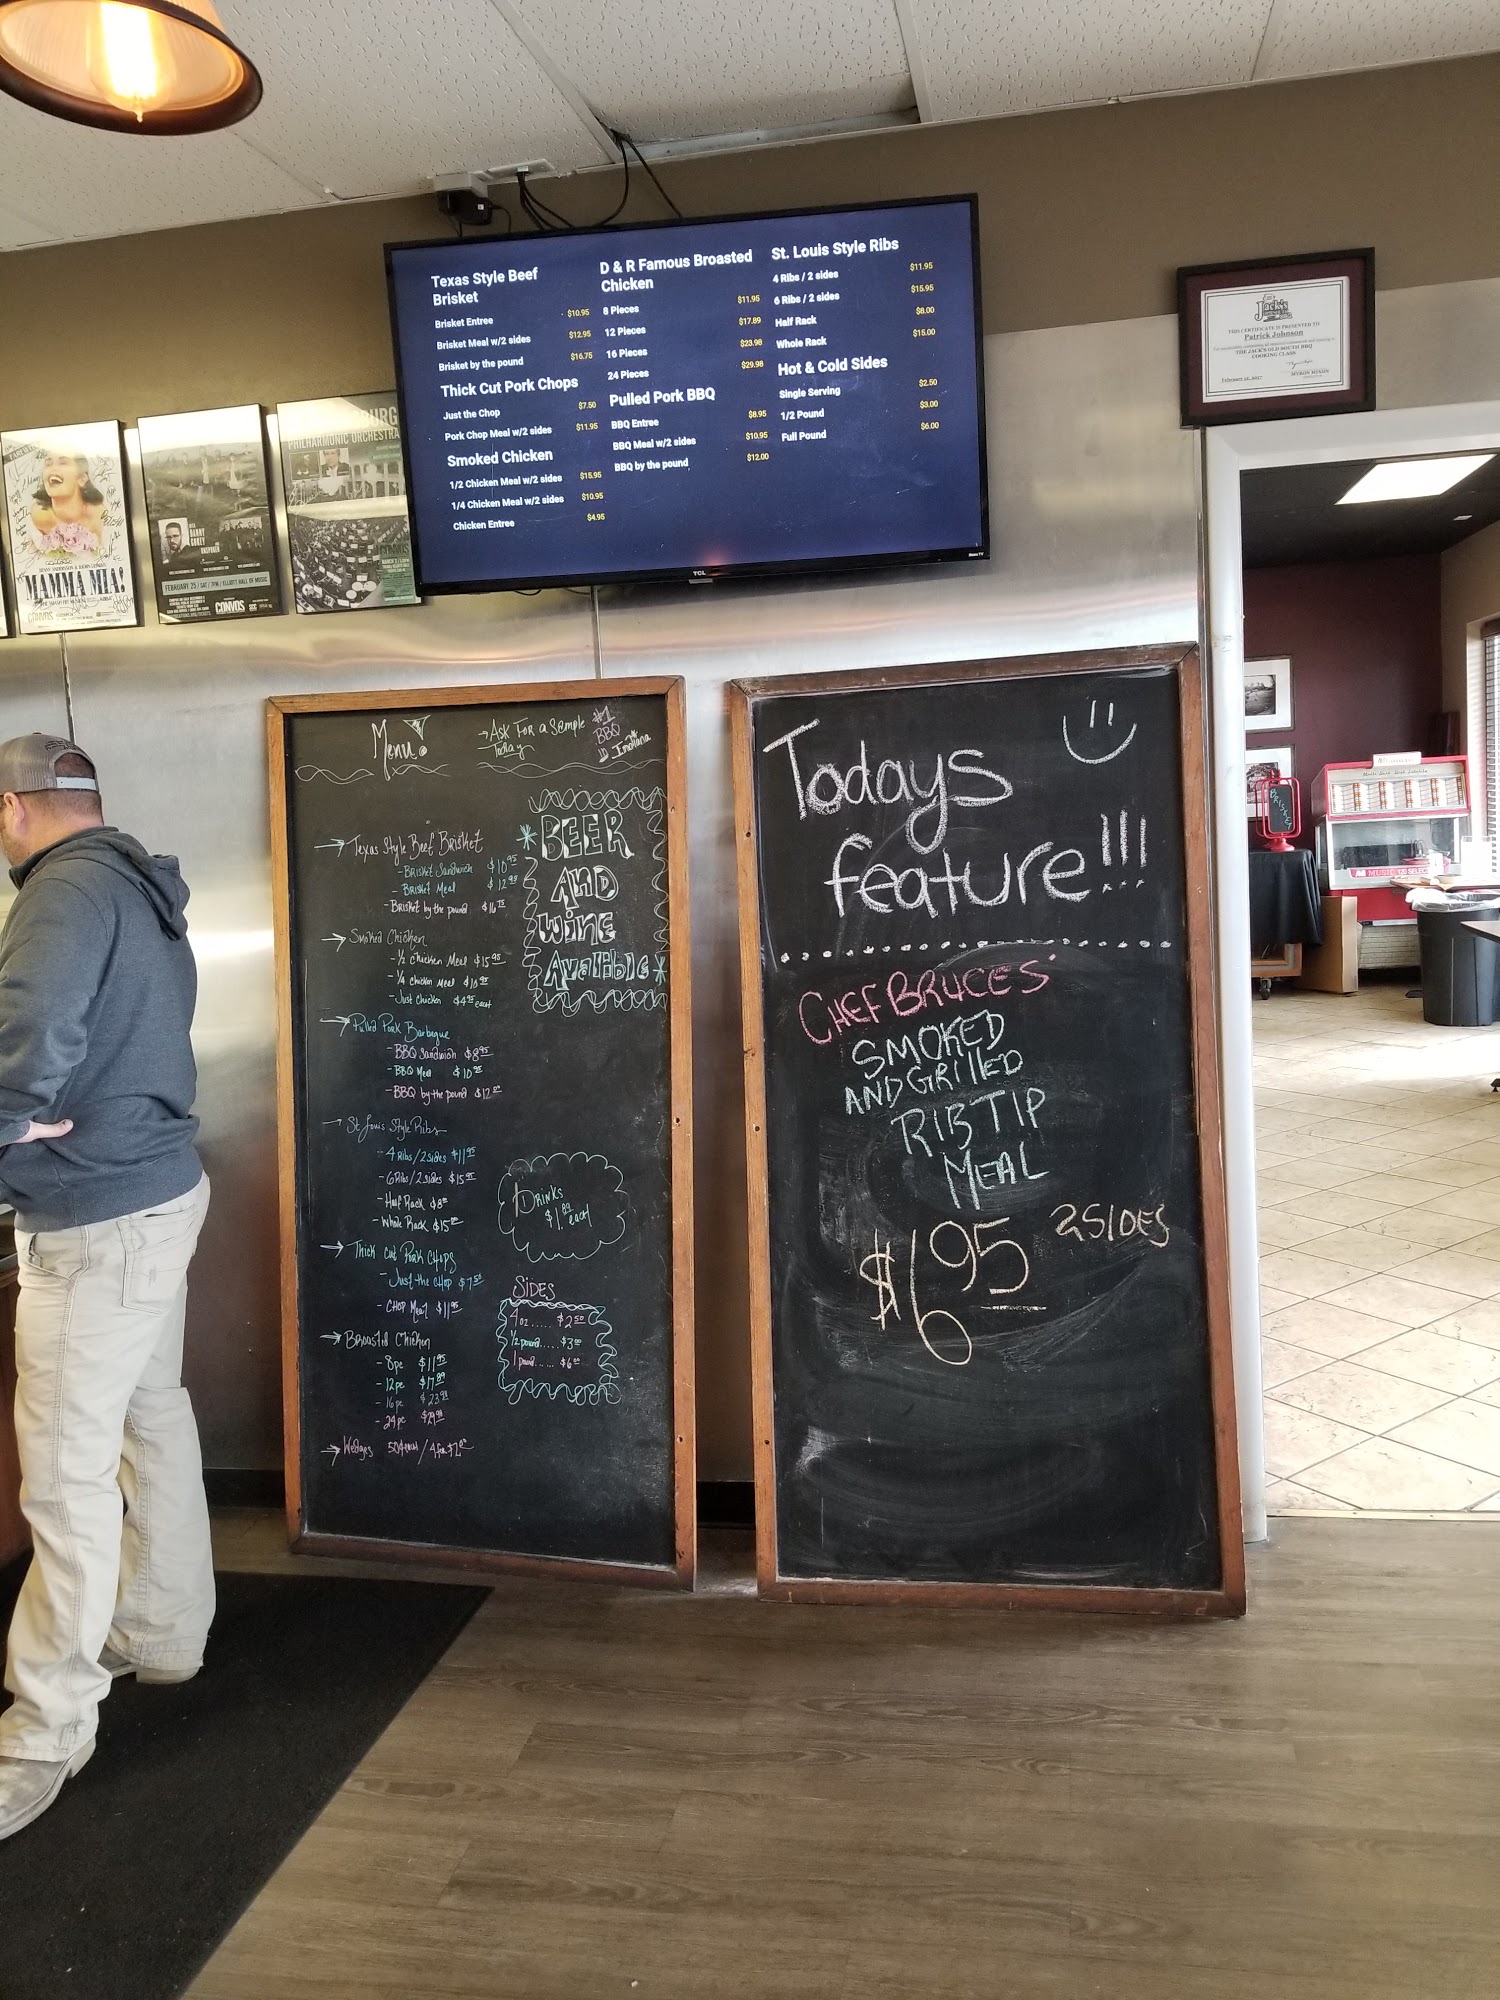 Texas Style Beef
Brisket
Brisket Entree $10.95
Brisket Meal w/2 sides $12.95
Brisket by the pound $16.75
Thick Cut Pork Chops
Just the Chop $7.50
Pork Chop Meal w/2 sides $11.95
Smoked Chicken
1/2 Chicken Meal w/2 sides $15.95
1/4 Chicken Meal w/2 sides $10.95
Chicken Entree $4.95
D & R Famous Broasted
Chicken
8 Pieces $11.95
12 Pieces $17.89
16 Pieces $23.98
24 Pieces $29.98
Pulled Pork BBQ
BBQ Entree $8.95
BBQ Meal w/2 sides $10.95
BBQ by the pound $12.00
St. Louis Style Ribs
4 Ribs / 2 sides $11.95
6 Ribs / 2 sides $15.95
Half Rack $8.00
Whole Rack $15.00
Hot & Cold Sides
Single Serving $2.50
1/2 Pound $3.00
Full Pound $6.00
TCL
Roku TV
Jack's
THIS CERTIFICATE IS PRESENTED TO
Patrick Johnson
THE JACK'S OLD SOUTH BBQ
COOKING CLASS
February 12, 2017
MYRON MIXON
MAMMA MIA!
CONVOS
DANNY
FEBRUARY 25 / SAT / 7PM / ELLIOTT HALL OF MUSIC
CONVOS
BURG
PHILHARMONIC ORCHESTRA
CONVOS
Menu!
→ Ask For a Sample
Today
#1
BBQ
in Indiana
→ Texas Style Beef Brisket
- Brisket Sandwich $10.95
- Brisket Meal $12.95
- Brisket by the pound $16.75
→ Smoked Chicken
- 1/2 Chicken Meal $15.95
- 1/4 Chicken Meal $10.95
- Just Chicken $4.95 each
→ Pulled Pork Barbeque
- BBQ Sandwich $8.95
- BBQ Meal $10.95
- BBQ by the pound $12.00
→ St Louis Style Ribs
- 4 Ribs/2 sides $11.95
- 6 Ribs/2 sides $15.95
- Half Rack $8.00
- Whole Rack $15.00
→ Thick cut Pork Chops
- Just the Chop $7.50
- Chop Meal $11.95
→ Broasted Chicken
- 8pc $11.95
- 12pc $17.89
- 16pc $23.98
- 24pc $29.98
→ Wedges 50¢ each / 4 for $2.00
* BEER
AND
WINE
Avalible *
DRINKS
$1.89 each
SIDES
4oz..... $2.50
1/2 pound.... $3.00
1 pound..... $6.00
Todays
feature!!!
CHEF BRUCES'
SMOKED
AND GRILLED
RIB TIP
MEAL
$6.95 2 SIDES
BRISKET